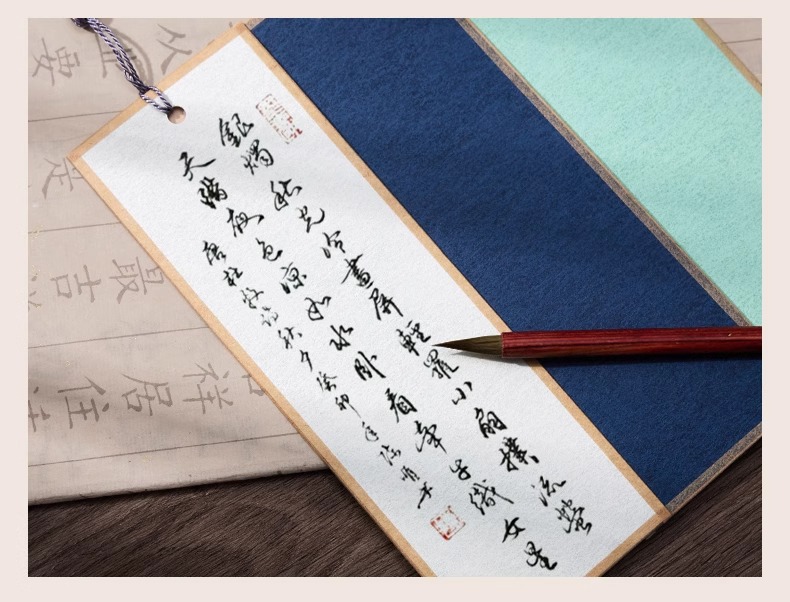 銀燭秋光冷畫屏輕羅小扇撲流螢
天階夜色涼如水卧看牽牛織女星
唐杜牧詩秋夕癸卯年
最吉祥
祥居住